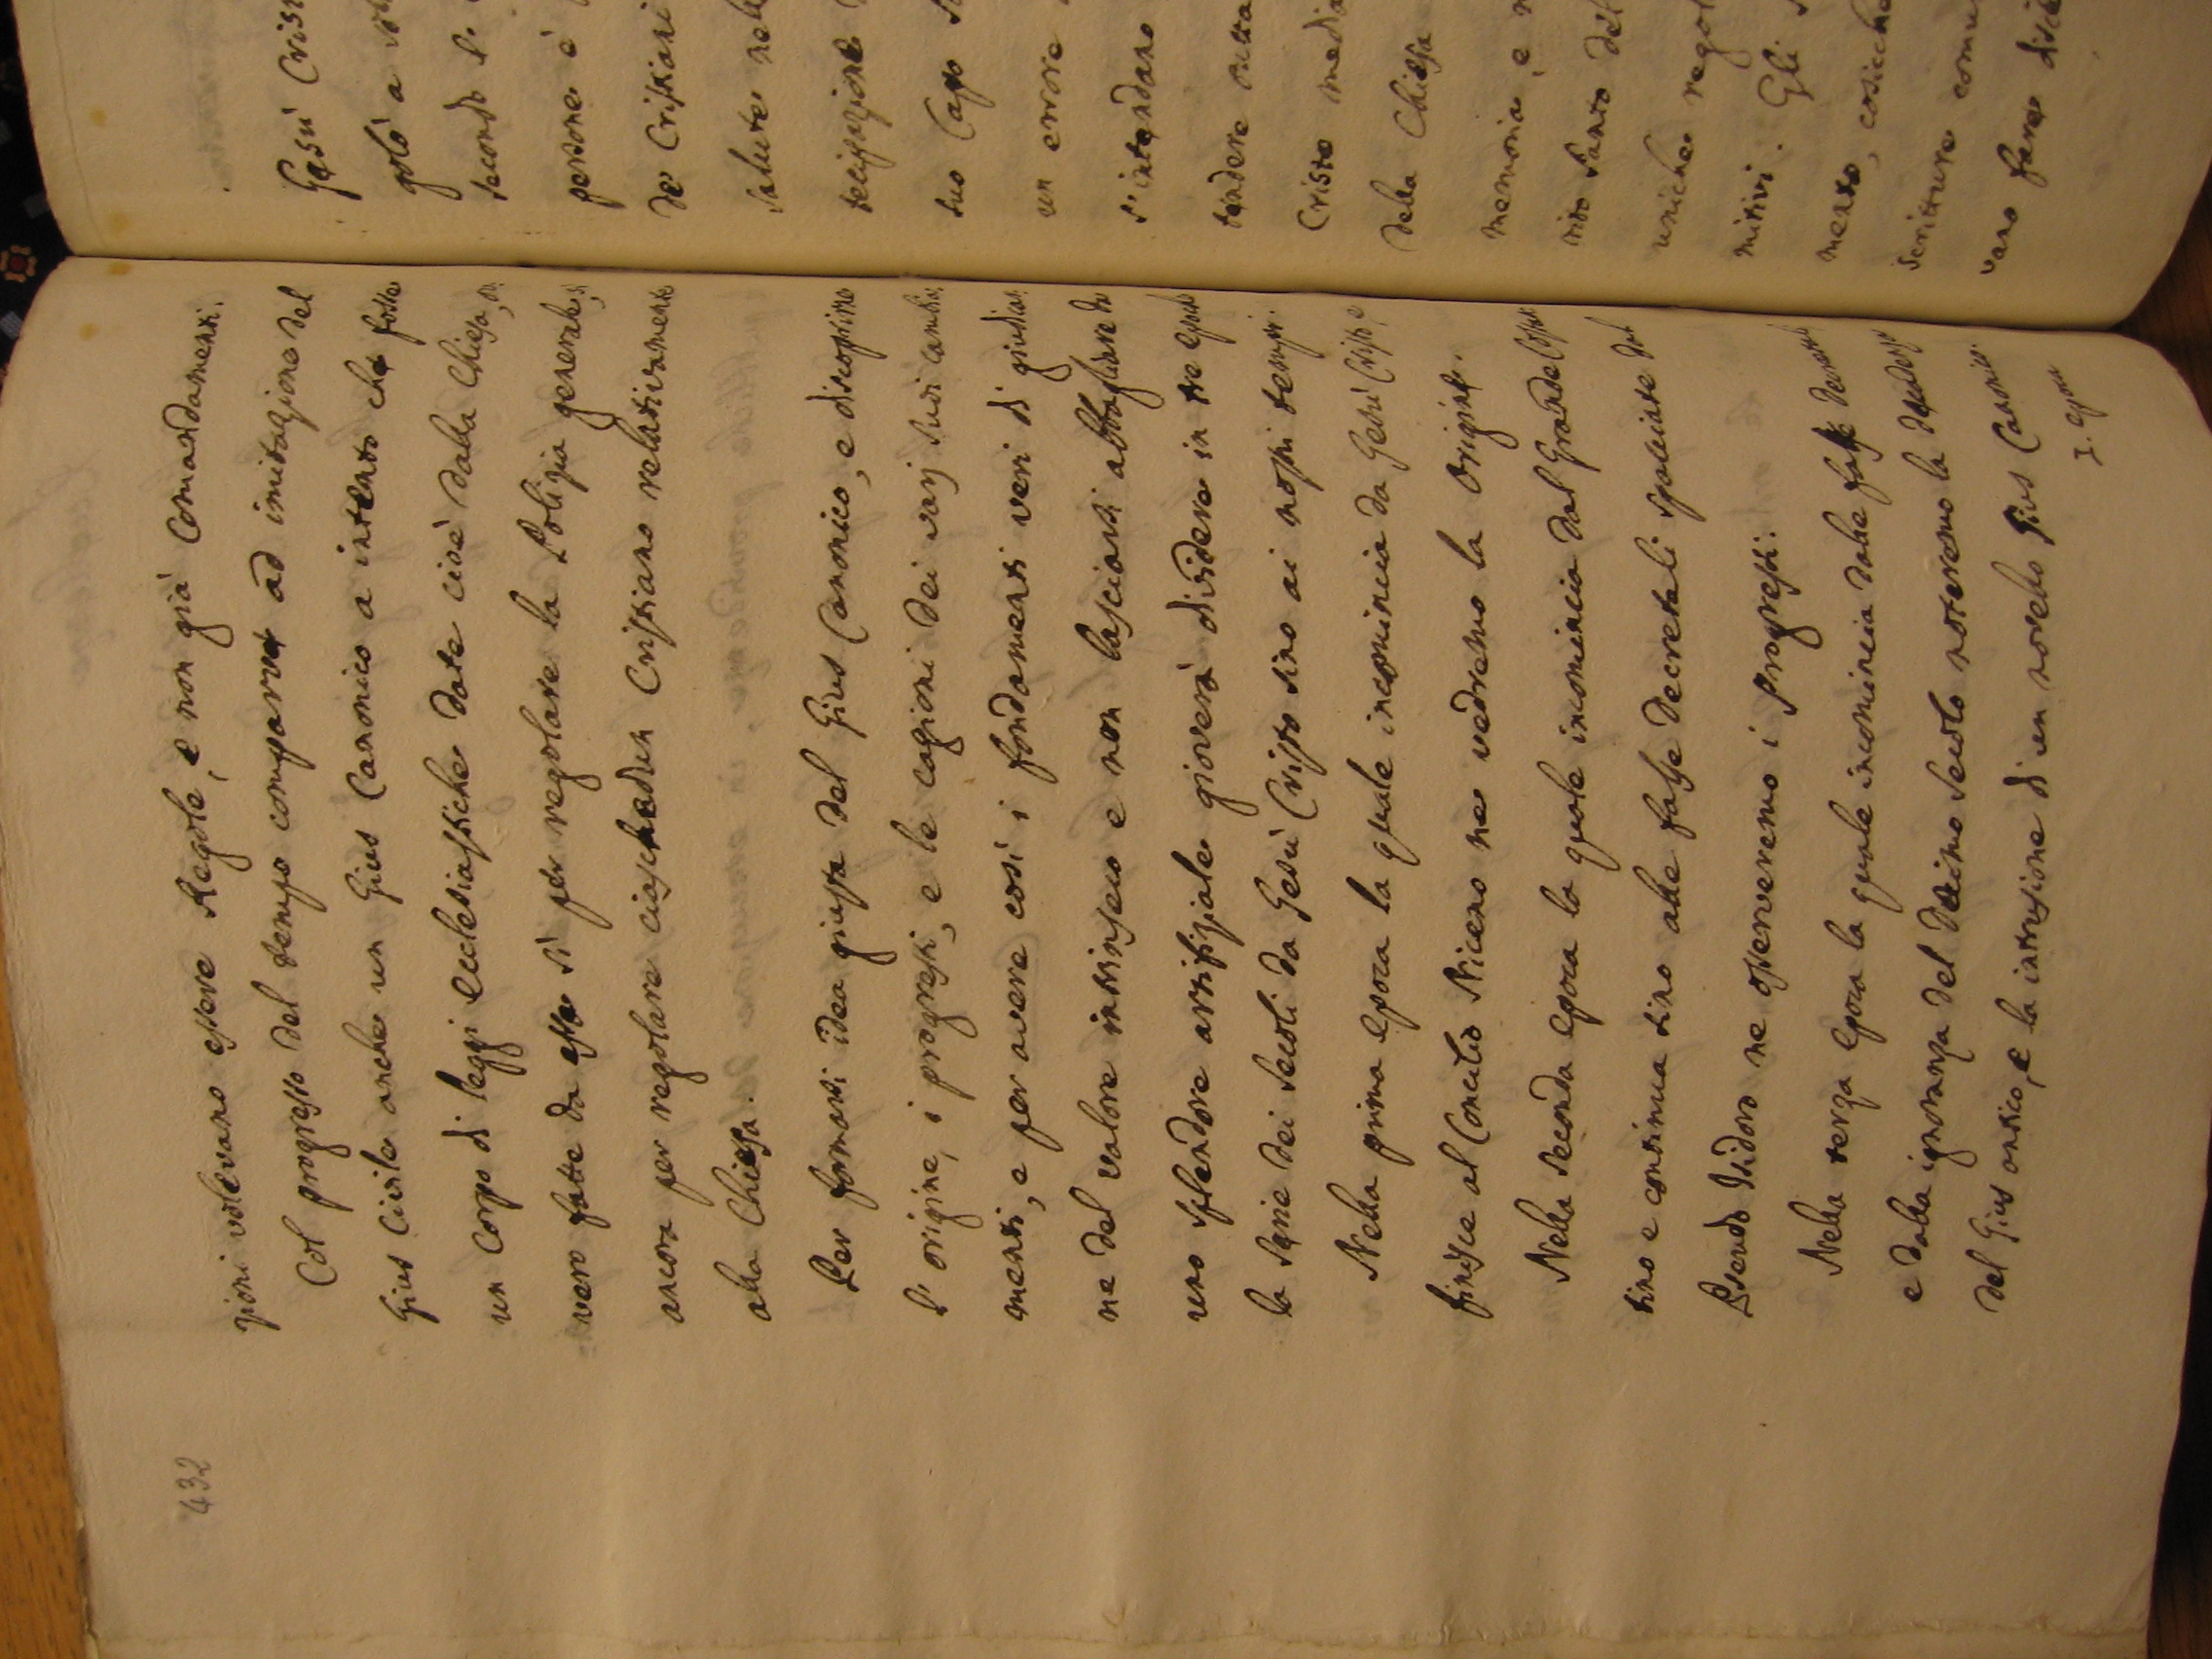 432
zioni volevano essere Regole, e non già Comandamenti.
Col progresso del tempo comparve ad imitazione del
Gius Civile anche un Gius Canonico a intento che fosse
un Corpo di leggi Ecclesiastiche date cioè dalla Chiesa, o
vero fatte da essa sì per regolare la Polizia generale, sì
ancora per regolare ciaschedun Cristiano relativamente
alla Chiesa.
Per formarsi idea giusta del Gius Canonico, e discoprirne
l'origine, i progressi, e le cagioni dei varj suoi cambia:
menti, e per avere così i fondamenti veri di giudicar:
ne del valore intrinseco e non lasciarsi abbagliare da
uno splendore artifiziale gioverà dividere in tre Epoche
la Serie dei Secoli da Gesù Cristo sino ai nostri tempi.
Nella prima Epoca la quale incomincia da Gesù Cristo e
finisce al Concilio Niceno ne vedremo la Origine.
Nella Seconda Epoca la quale incomincia dal Grande Costan:
tino e continua sino alle false Decretali spacciate dal
Pseudo Isidoro ne osserveremo i Progressi.
Nella terza Epoca la quale incomincia dalle false Decretali
e dalla ignoranza del Decimo Secolo noteremo la Decadenza
del Gius antico, e la intrusione di un novello Gius Canonico.
I. Epoca
Gesù Crist
golò a
secondo l'
persone è
de' Cristiani
Salute nel
suo Capo
un errore
s'intendano
tendere
Cristo media
della Chiesa
memoria, e
rito Santo del
uniche regol
mitivi. Gli
mento, cosicche
Scritture comu
vano fare